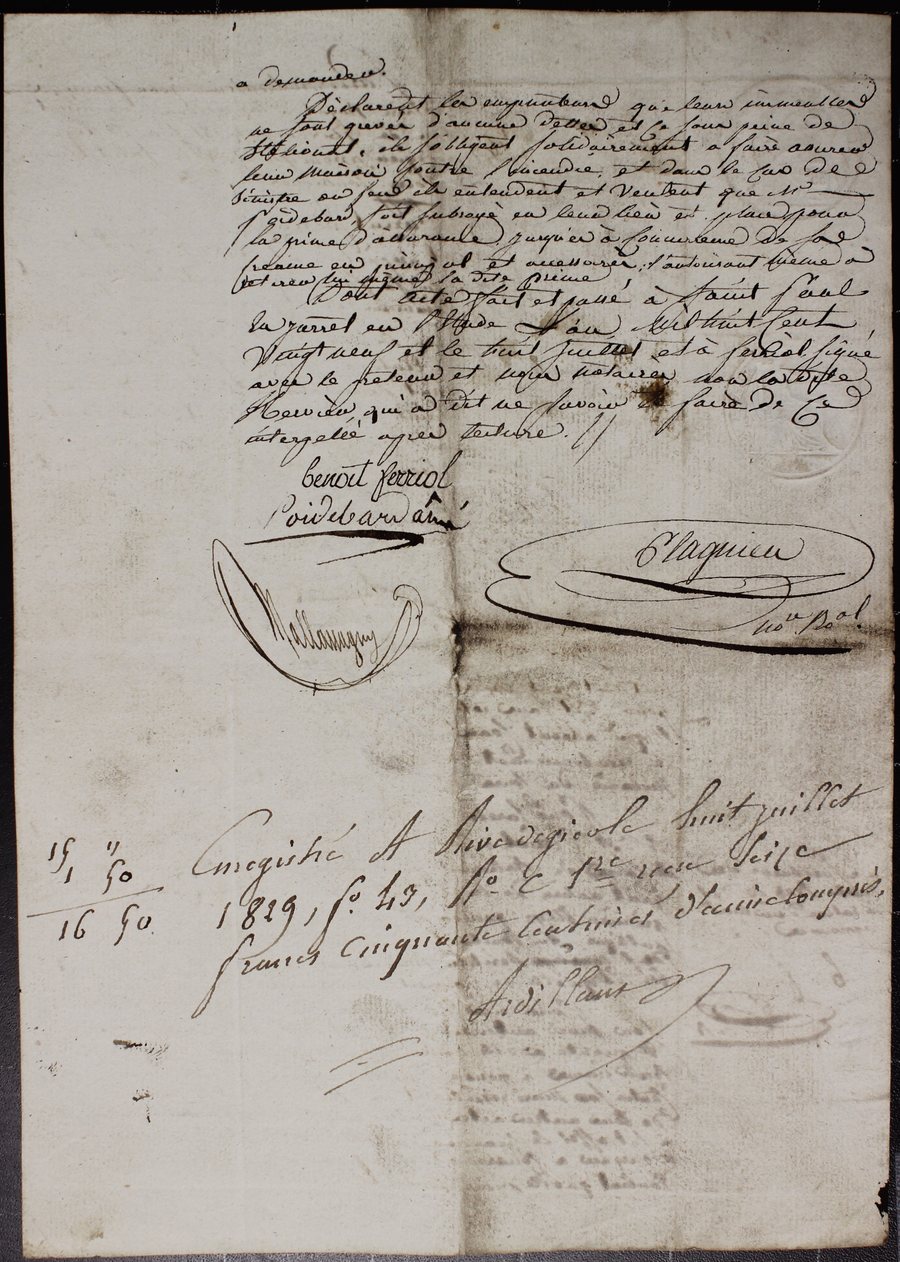 a demander.
Déclarent les emprunteurs que leurs immeubles
ne sont grevés d'aucune dettes et ce sous peine de
Stélionat, ils s'obligent solidairement a faire assurer
leur maison contre l'incendie, et dans le cas de
sinistre ou feu ils entendent et veulent que Mr
Poidebard, soit subrogé en leur lieu et place pour
la prime d'assurance jusqu'à concurrence de sa
créance en principal et accessoires, l'autorisant même à
retirer lui même la dite prime
Dont acte fait et passé à Saint Paul
En Jarret en l'Etude L'an Mil huit Cent
Vingt neuf et le huit juillet et a ferriol signé
avec le preteur et nous notaires non la dite
Hervier qui a dit ne savoir le faire de ce
interpellée après lecture. //
benoit ferriol
Poidebard aîné
Plagnieu
nore Roal.
Mallassagny
15 "
1 50
16 50
Enregistré A Rive de gier le huit juillet
1829, fo. 43, Ro. C 1re reçu Seize
francs Cinquante Centimes dixième Compris,